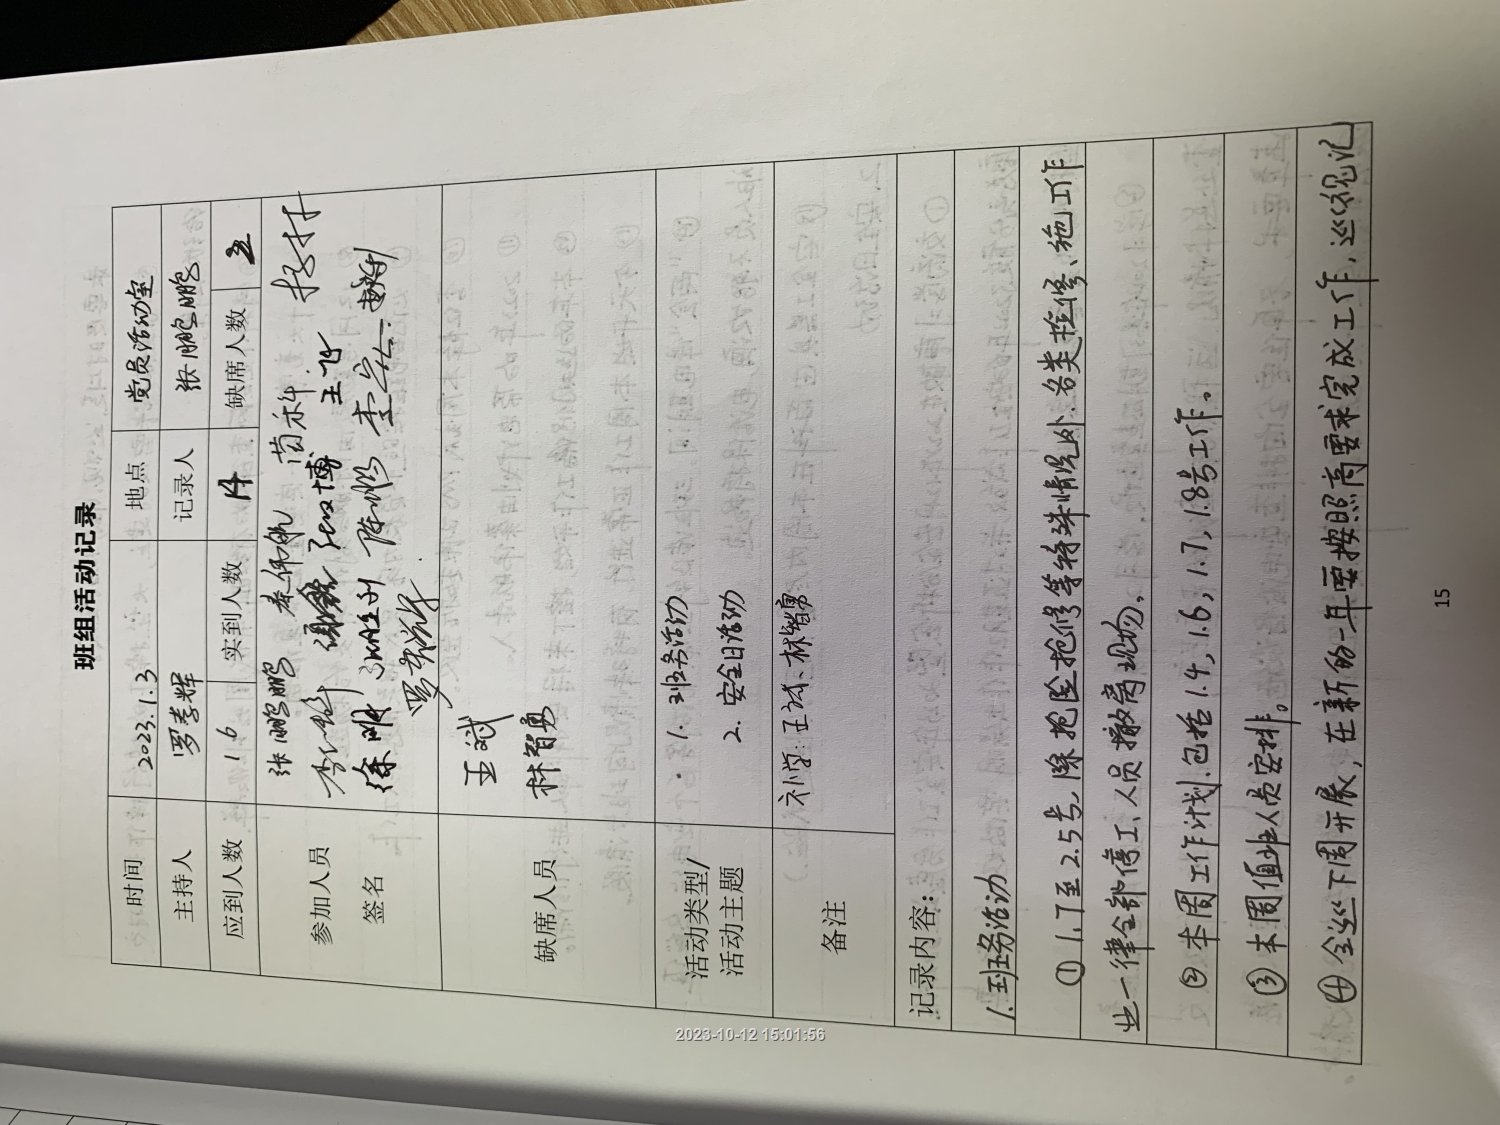 班组活动记录
时间 2023.1.3 地点 党员活动室
主持人 罗孝辉 记录人 张鹏鹏
应到人数 16 实到人数 14 缺席人数 2
参加人员
签名
张鹏鹏 秦仰帆 苗科
张博 王飞
徐明 陈彬 李宏
缺席人员
王斌
林智勇
活动类型/
活动主题
1. 班务活动
2. 安全日活动
备注 补学: 王斌、林智勇
记录内容:
1. 班务活动
① 1.1至2.5号,除抢险抢修等特殊情况外,各类检修、施工作
业一律全部停工、人员撤离现场。
② 本周工作计划:包括1.4,1.6,1.7,1.8号工作。
③ 本周值班人员安排。
④ 全巡下周开展,在新的一年要按照高要求完成工作,巡视记
15
2023-10-12 15:01:56